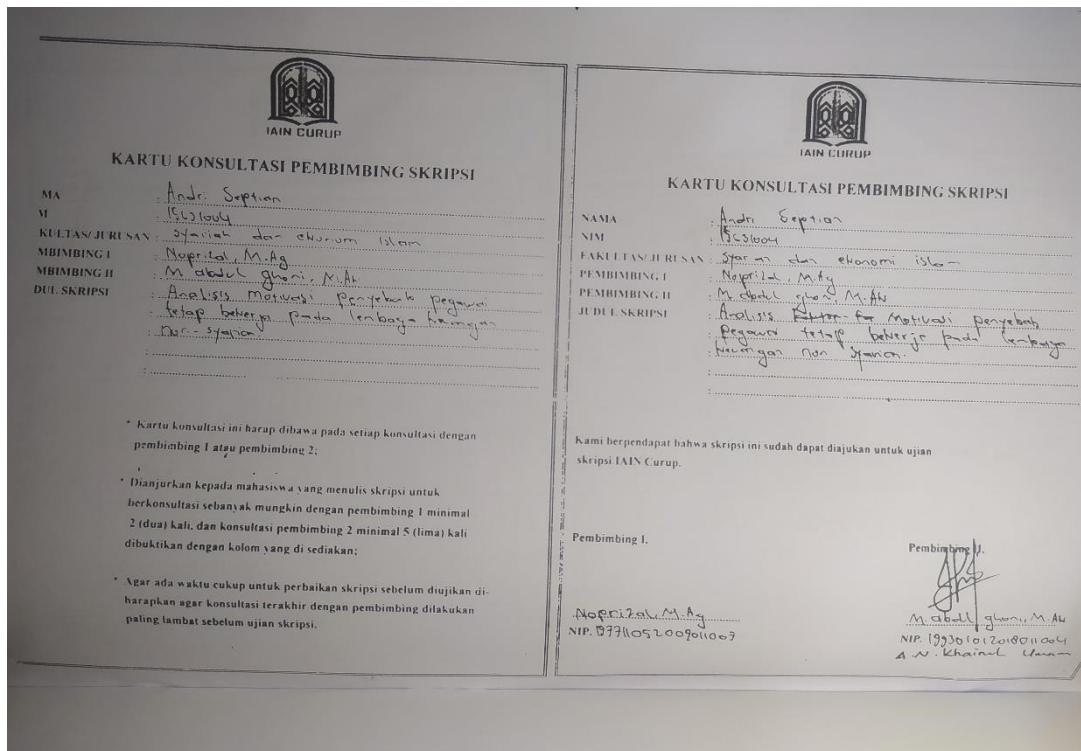 IAIN CURUP
KARTU KONSULTASI PEMBIMBING SKRIPSI
MA : Andri Septian
M : 15631004
KULTAS/ JURUSAN : Syariah dan ekonomi Islam
MBIMBING I : Noprizal, M.Ag
MBIMBING II : M abdul ghoni, M.Ak
DUL SKRIPSI : Analisis motivasi penyebab pegawai
: tetap bekerja pada lembaga keuangan
: non-syariah
* Kartu konsultasi ini harap dibawa pada setiap konsultasi dengan
pembimbing 1 atau pembimbing 2;
* Dianjurkan kepada mahasiswa yang menulis skripsi untuk
berkonsultasi sebanyak mungkin dengan pembimbing 1 minimal
2 (dua) kali, dan konsultasi pembimbing 2 minimal 5 (lima) kali
dibuktikan dengan kolom yang di sediakan;
* Agar ada waktu cukup untuk perbaikan skripsi sebelum diujikan di-
harapkan agar konsultasi terakhir dengan pembimbing dilakukan
paling lambat sebelum ujian skripsi.
IAIN CURUP
KARTU KONSULTASI PEMBIMBING SKRIPSI
NAMA : Andri Septian
NIM : 15631004
FAKULTAS/ JURUSAN : Syariah dan ekonomi islam
PEMBIMBING I : Noprizal, M.Ag
PEMBIMBING II : M. abdul ghoni, M.Ak
JUDUL SKRIPSI : Analisis Motivasi penyebab
: Pegawai tetap bekerja pada lembaga
: keuangan non syariah.
Kami berpendapat bahwa skripsi ini sudah dapat diajukan untuk ujian
skripsi IAIN Curup.
Pembimbing I.
Pembimbing II.
Noprizal, M.Ag
NIP. 197711052009011007
M. abdul ghoni, M.Ak
NIP. 199301012018011004
A.N. Khairul Umam